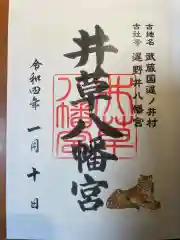 古地名 武蔵国遅ノ井村
古社号 遅野井八幡宮
井草八幡宮
令和四年
一月十日